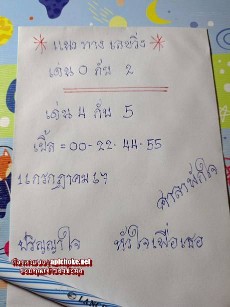 * แนวทาง บนวิ่ง *
เด่น 0 กับ 2
เด่น 4 กับ 5
เบิ้ล = 00-22-44-55
16 กรกฎาคม 67
ศาลาพักใจ
ปริญญาใจ
หัวใจเพื่อเธอ